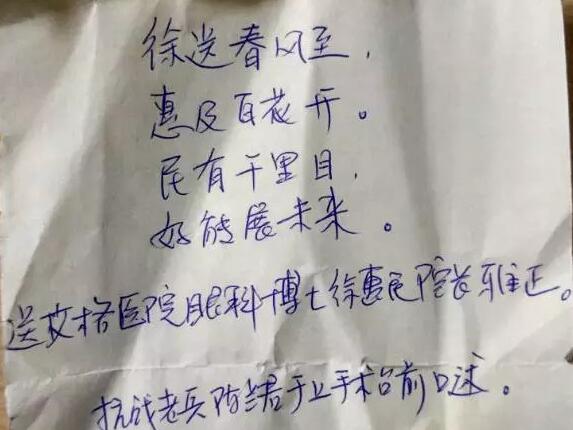 徐送春风至，
惠及百花开。
民有千里目，
好能展未来。
送艾格医院眼科博士徐惠民院长雅正。
抗战老兵陈 于上手术台前口述。